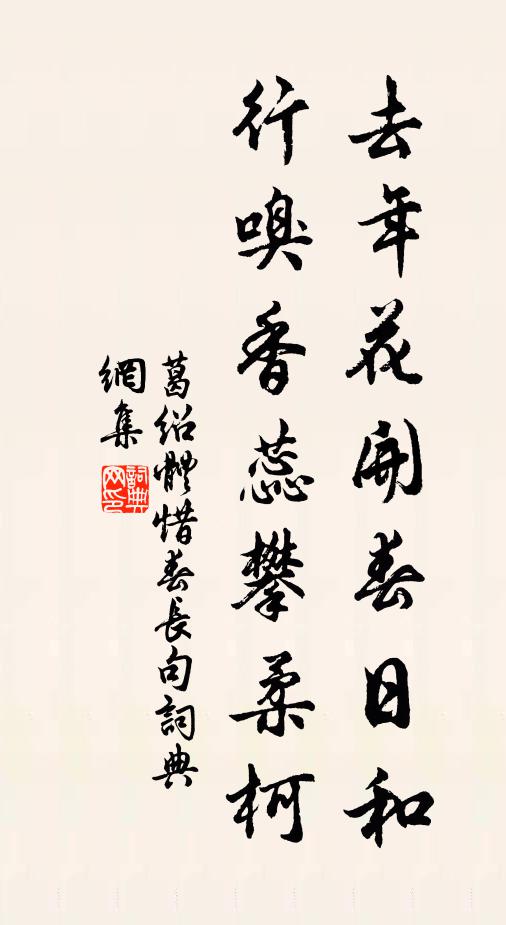 去年花開春日和
行嗅香蕊攀柔柯
葛紹體惜春長句詞典
網集
詞典
网印